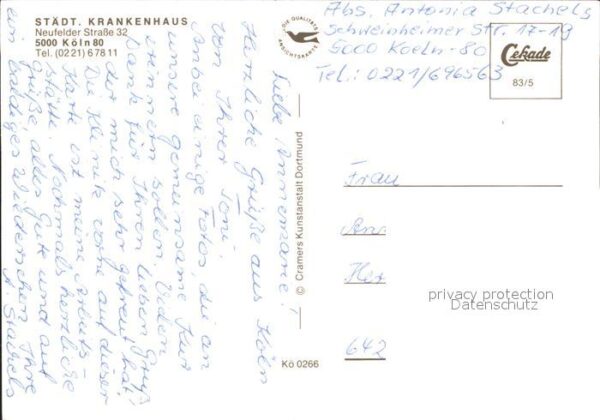 STÄDT. KRANKENHAUS
Neufelder Straße 32
5000 Köln 80
Tel. (0221) 67811
DIE QUALITÄTS
ANSICHTSKARTE
Abs. Antonia Stachels
Schweinheimer Str. 17-19
5000 Koeln-80
Tel.: 0221/696563
Cekade
83/5
Liebe Annemarie!
Herzliche Grüße aus Köln
von Ihrer Toni.
Anbei einige Fotos, die an
unsere gemeinsame Kur
erinnern sollen. Vielen
Dank für Ihren lieben Gruß,
der mich sehr gefreut hat.
Die Klinik vorne auf dieser
Karte ist meine Arbeits-
stätte. Nochmals herzliche
Grüße, alles Gute und auf
ein baldiges Wiedersehen Ihre
A. Stachels
© Cramers Kunstanstalt Dortmund
Kö 0266
Frau
An
Her
642
privacy protection
Datenschutz